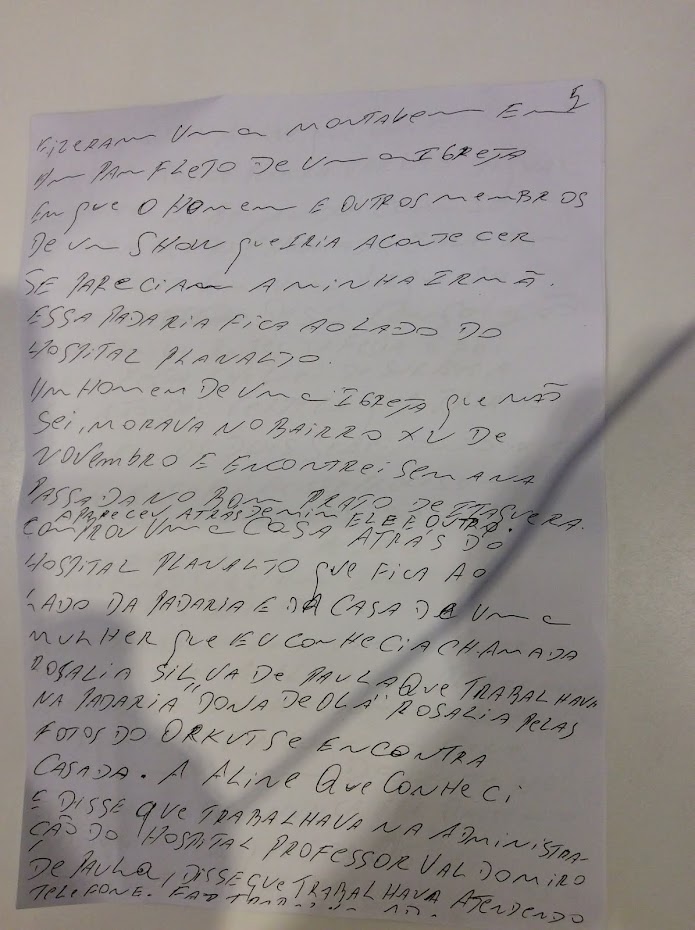 5
FIZERAM UMA MONTAGEM EM
UM PANFLETO DE UMA IGREJA
EM QUE O HOMEM E OUTROS MEMBROS
DE UM SHOW QUE IRIA ACONTECER
SE PARECIAM A MINHA IRMÃ.
ESSA PADARIA FICA AO LADO DO
HOSPITAL PLANALTO.
UM HOMEM DE UMA IGREJA QUE NÃO
SEI, MORAVA NO BAIRRO XV DE
NOVEMBRO E ENCONTREI SEMANA
PASSADA NO BOM PRATO DE ITAQUERA.
APARECEU ATRÁS DE MIM ELE E OUTRO.
COMPROU UMA CASA ATRÁS DO
HOSPITAL PLANALTO QUE FICA AO
LADO DA PADARIA E DA CASA DE UMA
MULHER QUE EU CONHECIA CHAMADA
ROSALIA SILVA DE PAULA QUE TRABALHAVA
NA PADARIA "DONA DEOLA" ROSALIA PELAS
FOTOS DO ORKUT SE ENCONTRA
CASADA. A ALINE QUE CONHECI
E DISSE QUE TRABALHAVA NA ADMINISTRA-
ÇÃO DO HOSPITAL PROFESSOR VALDOMIRO
DE PAULA, DISSE QUE TRABALHAVA ATENDENDO
TELEFONE.